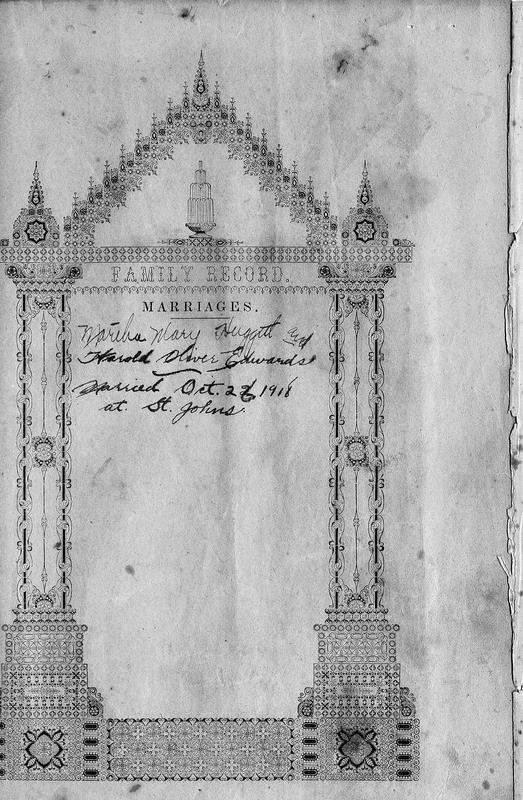 FAMILY RECORD.
MARRIAGES.
Martha Mary Huggett and
Harold Oliver Edwards
Married Oct. 1918
at St. Johns.